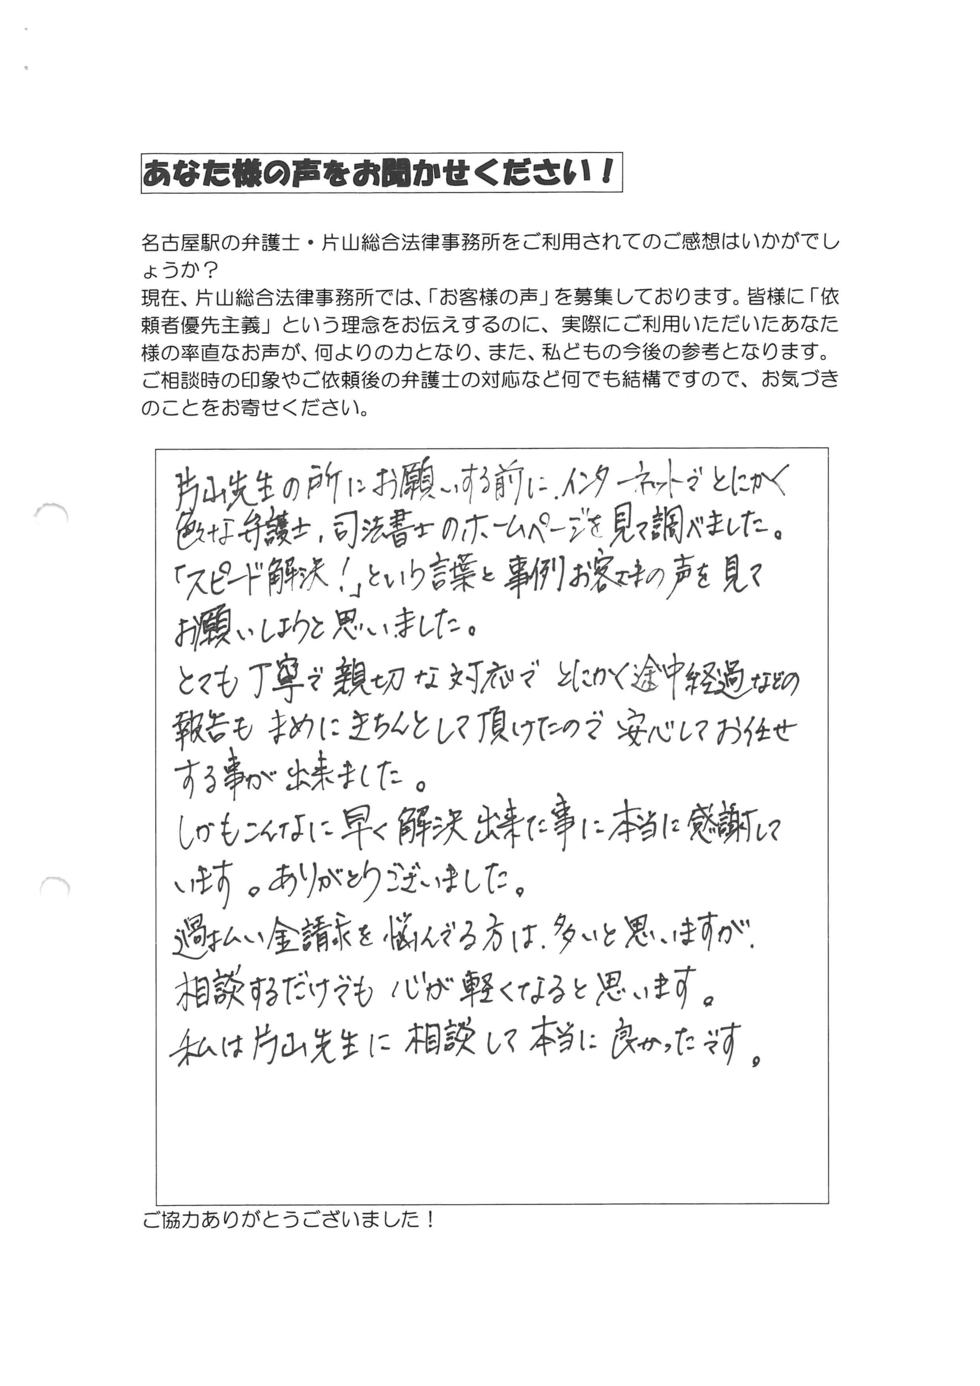 あなた様の声をお聞かせください！
名古屋駅の弁護士・片山総合法律事務所をご利用されてのご感想はいかがでし
ょうか？
現在、片山総合法律事務所では、「お客様の声」を募集しております。皆様に「依
頼者優先主義」という理念をお伝えするのに、実際にご利用いただいたあなた
様の率直なお声が、何よりの力となり、また、私どもの今後の参考となります。
ご相談時の印象やご依頼後の弁護士の対応など何でも結構ですので、お気づき
のことをお寄せください。
片山先生の所にお願いする前に、インターネットでとにかく
色々な弁護士、司法書士のホームページを見て調べました。
「スピード解決！」という言葉と事例お客様の声を見て
お願いしようと思いました。
とても丁寧で親切な対応でとにかく途中経過などの
報告もまめにきちんとして頂けたので安心してお任せ
する事が出来ました。
しかもこんなに早く解決出来た事に本当に感謝して
います。ありがとうございました。
過払い金請求を悩んでる方は、多いと思いますが、
相談するだけでも心が軽くなると思います。
私は片山先生に相談して本当に良かったです。
ご協力ありがとうございました！